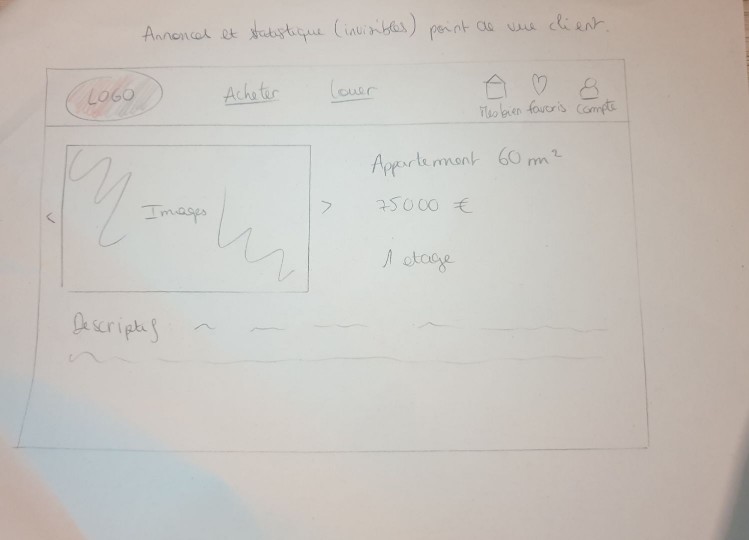 Annonces et statistique (invisibles) point de vue client.
LOGO Acheter Louer
Mes bien favoris compte
Appartement 60 m²
75000 €
< Images >
1 etage
Descriptif